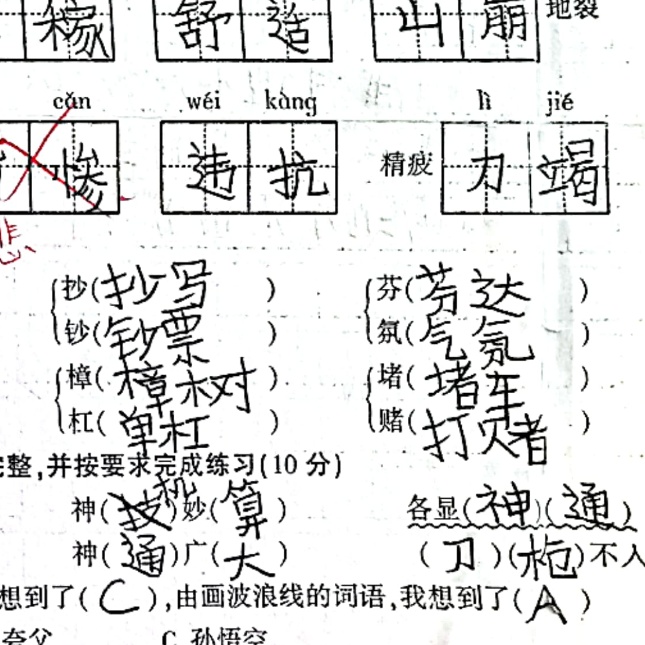 稼 舒 适 山 崩 地裂
cǎn wéi kàng lì jié
惨 违 抗 精疲 力 竭
悲
抄(抄写) 芬(芬达)
钞(钞票) 氛(气氛)
樟(樟树) 堵(堵车)
杠(单杠) 赌(打赌)
完整,并按要求完成练习(10分)
神(机)妙(算) 各显(神)(通)
神(通)广(大) (刀)(枪)不入
想到了(C),由画波浪线的词语,我想到了(A)
夸父 C.孙悟空